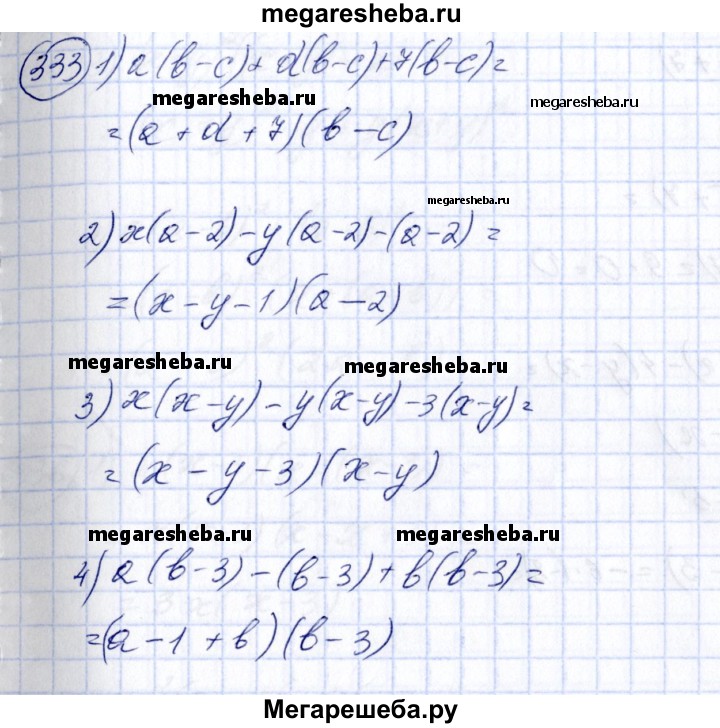 megaresheba.ru
333 1) a(b-c)+d(b-c)+7(b-c)=
megaresheba.ru megaresheba.ru
=(a+d+7)(b-c)
megaresheba.ru
2) x(a-2)-y(a-2)-(a-2)=
=(x-y-1)(a-2)
megaresheba.ru megaresheba.ru
3) x(x-y)-y(x-y)-3(x-y)=
=(x-y-3)(x-y)
megaresheba.ru megaresheba.ru
4) a(b-3)-(b-3)+b(b-3)=
=(a-1+b)(b-3)
Мегарешеба.ру